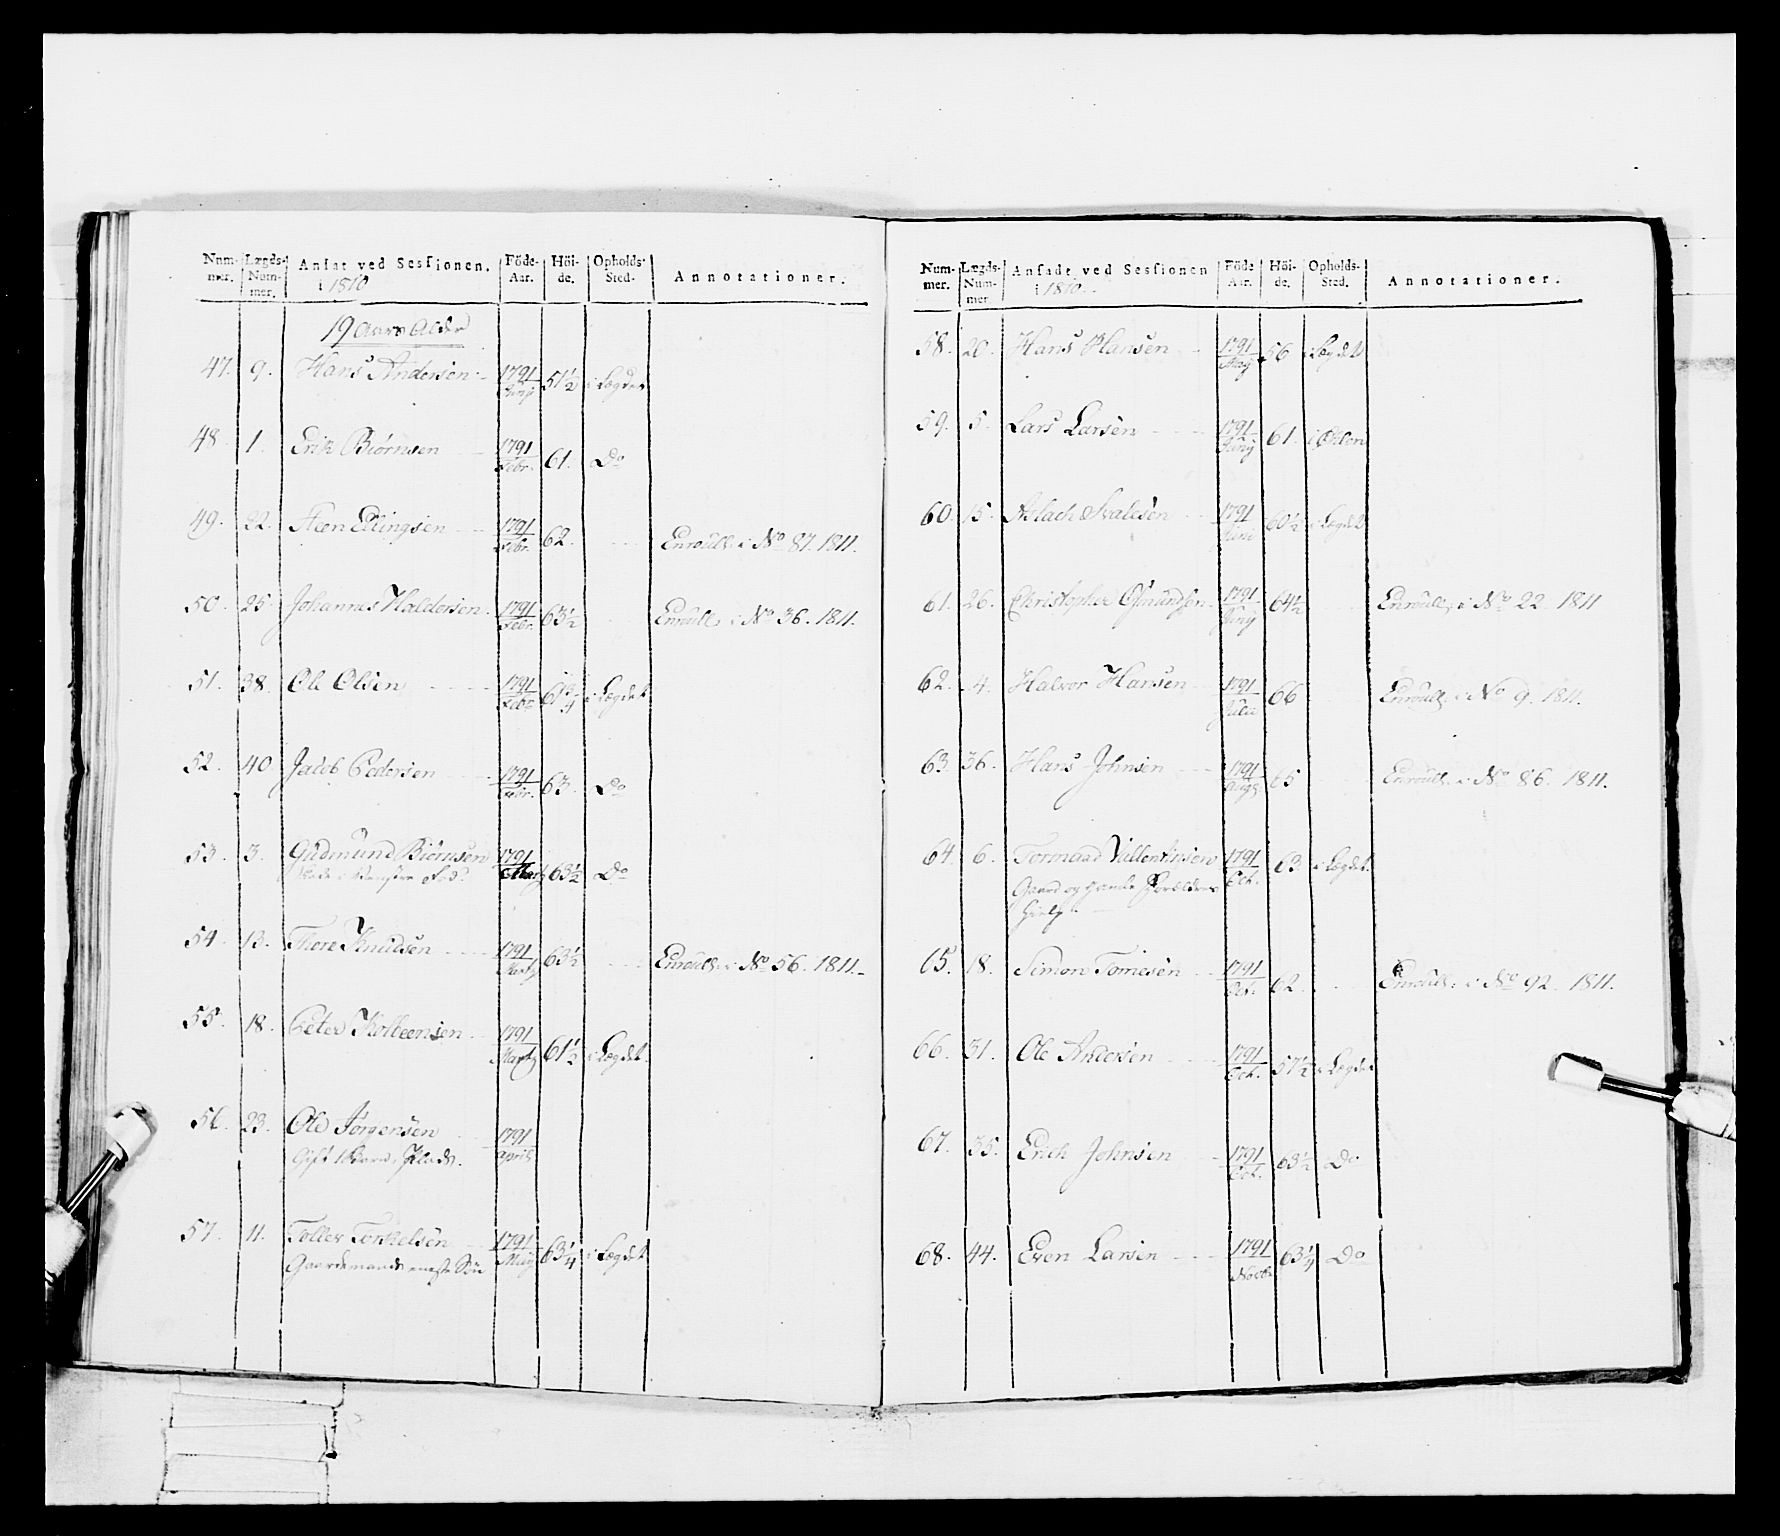 Num-mer. Lægds-Num-mer. Ansat ved Sessionen. i 1810 Föde-Aar. Höi-de. Opholds-Sted. Annotationer.
19 Aars Alder
47. 9. Hans Andersen 1791 51½ i Lægdet
48. 1. Erik Biørnsen 1791 Febr. 61. Do
49. 22. Steen Ellingsen 1791 Febr. 62. Enroull. i No 87. 1811.
50. 25. Johannes Haldersen 1791 Febr. 63½ Enroull. i No 36. 1811.
51. 38. Ole Olsen 1791 Febr 61¾ i Lægdet
52. 40. Jacob Pedersen 1791 Febr. 63. Do
53. 3. Gudmund Biørnsen 1791 Martz 63½ Do
54. 13. Thore Knudsen 1791 Martz 63½ Enroull. i No 56. 1811.
55. 18. Peter Kolbeensen 1791 Martz 61½ i Lægdet.
56. 23. Ole Jørgensen 1791 April
Gift 1 Barn, Plads.
57. 11. Tollev Torkelsen 1791 May 63¼ i Lægdet
Gaardemands eneste Søn
Num-mer. Lægds-Num-mer. Ansadt ved Sessionen i 1810. Föde Aar. Höi-de. Opholds-Sted. Annotationer.
58. 20. Hans Hansen 1791 May 56 i Lægdet
59. 5. Lars Larsen 1791 Junÿ 61.
60. 15. Aslach 1791 Juni 60½ i Lægdet
61. 26. Christopher Osmundsen 1791 Junÿ 64½ Enroull. i No 22. 1811
62. 4. Halvor Hansen 1791 66 Enroull. i No 9. 1811.
63. 36. Hans Johnsen 1791 Augs 65 Enroull. i No 86. 1811.
64. 6. Tormond Vallentinsen 1791 Oct. 63 i Lægdet.
Gaard og gamle Forældres
Hielp.
65. 18. Simon Tomesen 1791 Oct. 62 Enroull. i No 92. 1811.
66. 31. Ole Andersen 1791 Oct. 57½ i Lægdet
67. 35. Erich Johnsen 1791 Oct. 63½ Do
68. 44. Even Larsen 1791 Novbr 63¼ Do